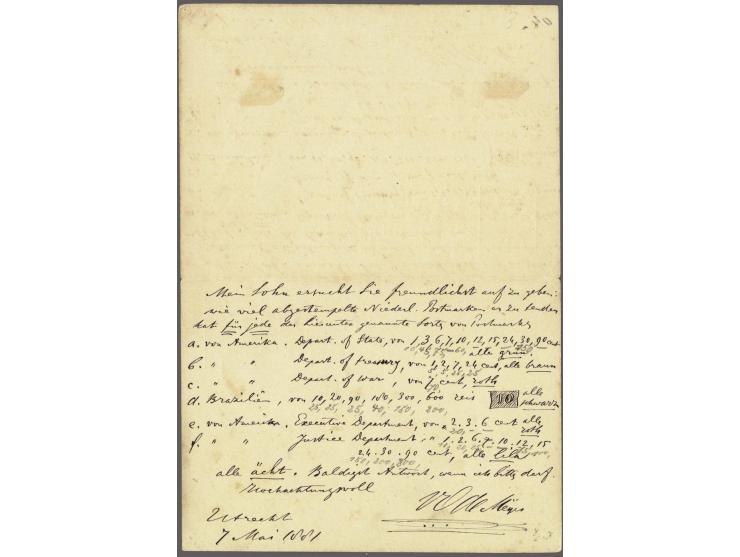 Mein Sohn ersucht Sie freundlichst auf zu geben:
wie viel abgestempelte Niederl. Postmarken er zu senden
hat für jede der hierunten genannte Sorts von Postmarks
a. von Amerika. Depart. of State, von 1, 3, 6, 7, 10, 12, 15, 24, 30, 90 cent
alle grün,
b. " " Depart. of treasury, von 1, 2, 7, 24 cent, alle braun
c. " " Depart. of war, von 7 cent, roth
d. Brazilien, von 10, 20, 90, 180, 300, 600 reis 10 alle schwarz
25, 25, 25, 40, 150, 200,
e. von Amerika. Executive Department, von 2. 3. 6 cent alle roth
f. " " Justice Department, " 1. 2. 6. 10. 12, 15
24. 30. 90 cent, alle lila
150, 200, 300,
alle ächt. Baldigst Antwort, wenn ich bitte darf.
Hochachtungsvoll
de Meijer
Utrecht
7 Mai 1881